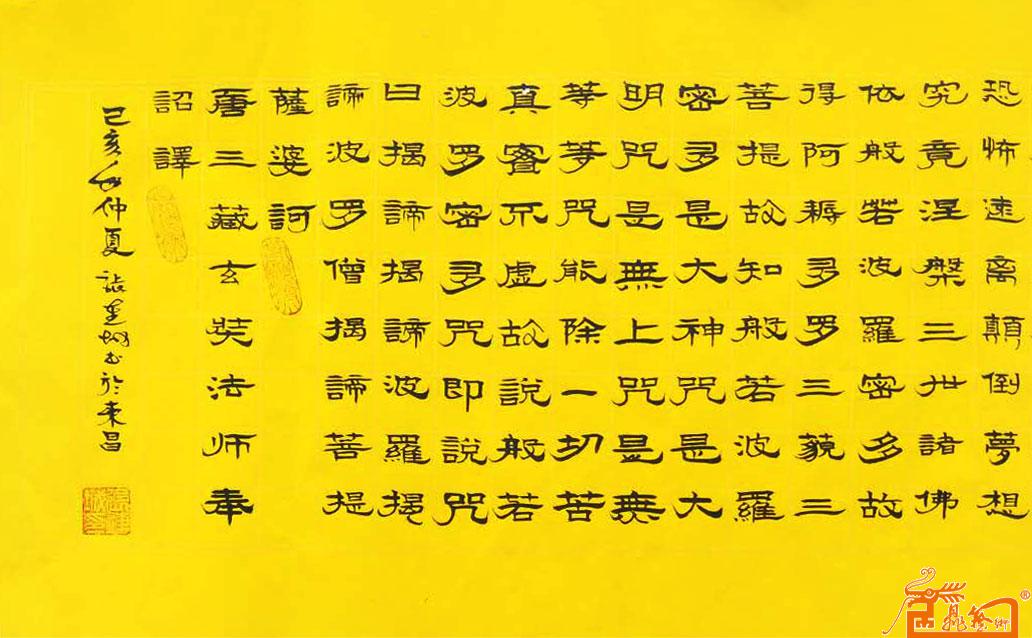 恐怖遠离顛倒夢想
究竟涅槃三世諸佛
依般若波羅密多故
得阿耨多罗三藐三
菩提故知般若波羅
密多是大神咒是大
明咒是無上咒是無
等等咒能除一切苦
真實不虛故說般若
波罗密多咒即說咒
曰揭諦揭諦波羅揭
諦波罗僧揭諦菩提
薩婆訶
唐三藏玄奘法师奉
詔譯
己亥年仲夏 书於東昌